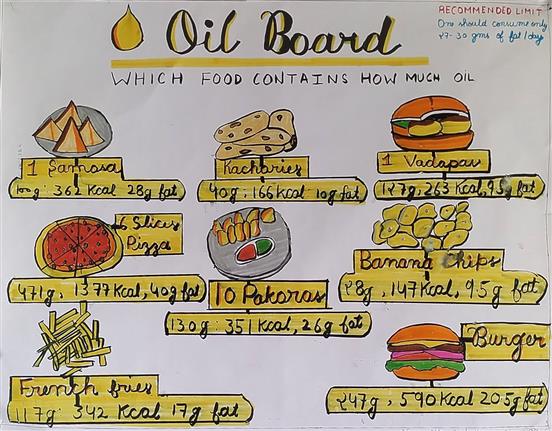 Oil Board
RECOMMENDED LIMIT
One should consume only
27-30 gms of fat/day
WHICH FOOD CONTAINS HOW MUCH OIL
1 Samosa
100g: 362 Kcal 28g fat
Kachories
40g, 166 Kcal 10g fat
1 Vadapav
127g, 263 Kcal, 9.5g fat
6 Slices
Pizza
471g, 1377 Kcal, 40g fat
10 Pakoras
130g: 351 Kcal, 26g fat
Banana Chips
28g, 147 Kcal, 9.5g fat
French fries
117g: 342 Kcal 17g fat
Burger
247g, 590 Kcal 20.5g fat